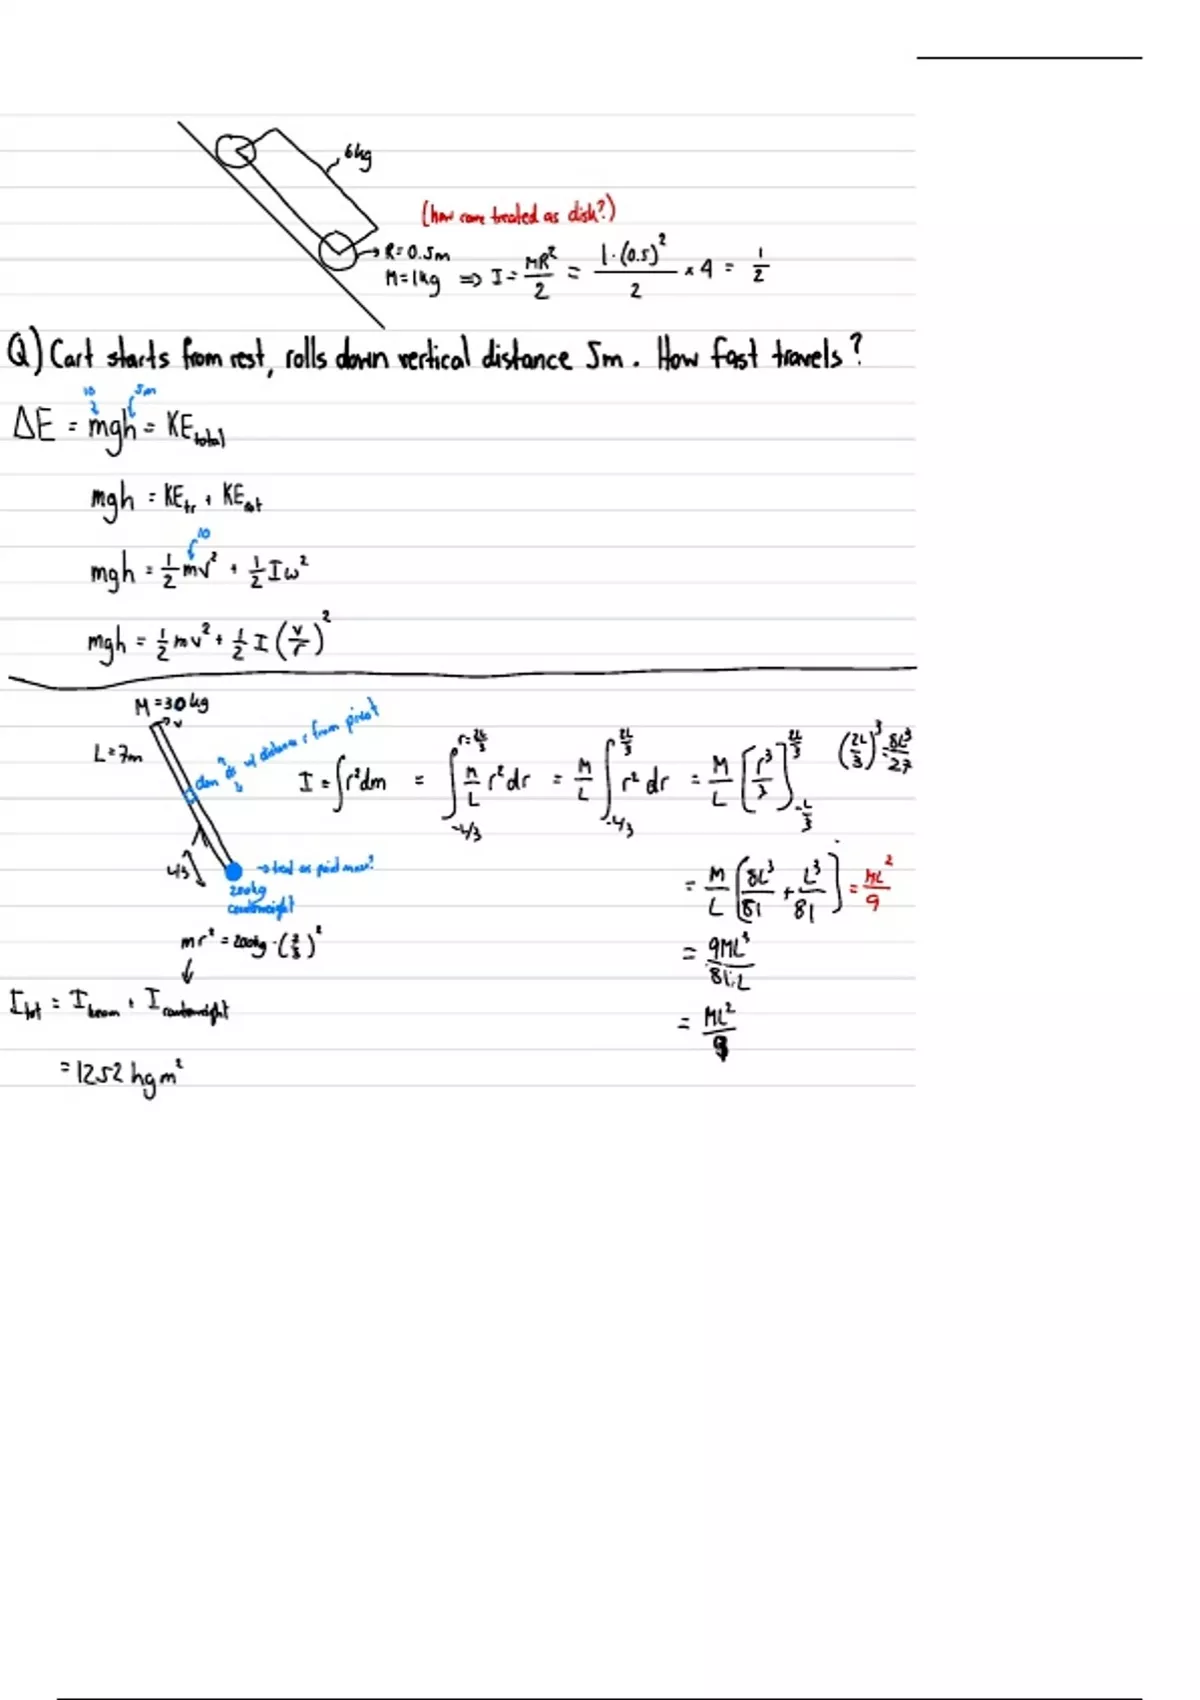 6kg
(how come treated as disk?)
→ R = 0.5m
M = 1kg ⇒ I = MR²/2 = 1·(0.5)²/2 × 4 = 1/2
Q) Cart starts from rest, rolls down vertical distance 5m. How fast travels?
10 5m
ΔE = mgh = KE total
mgh = KE tr + KE rot
10
mgh = 1/2 mv² + 1/2 Iω²
mgh = 1/2 mv² + 1/2 I (v/r)²
M = 30kg
L = 7m
dm w/ distance r from pivot
I = ∫r²dm = ∫_{-L/3}^{r=2L/3} M/L r² dr = M/L ∫_{-L/3}^{2L/3} r² dr = M/L [r³/3]_{-L/3}^{2L/3} (2L/3)³ = 8L³/27
L/3
→ treat as point mass?
200kg
counterweight
= M/L [8L³/81 + L³/81] = ML²/9
mr² = 200kg · (7/3)²
= 9ML³/81·L
I tot = I beam + I counterweight
= ML²/9
= 1252 kgm²